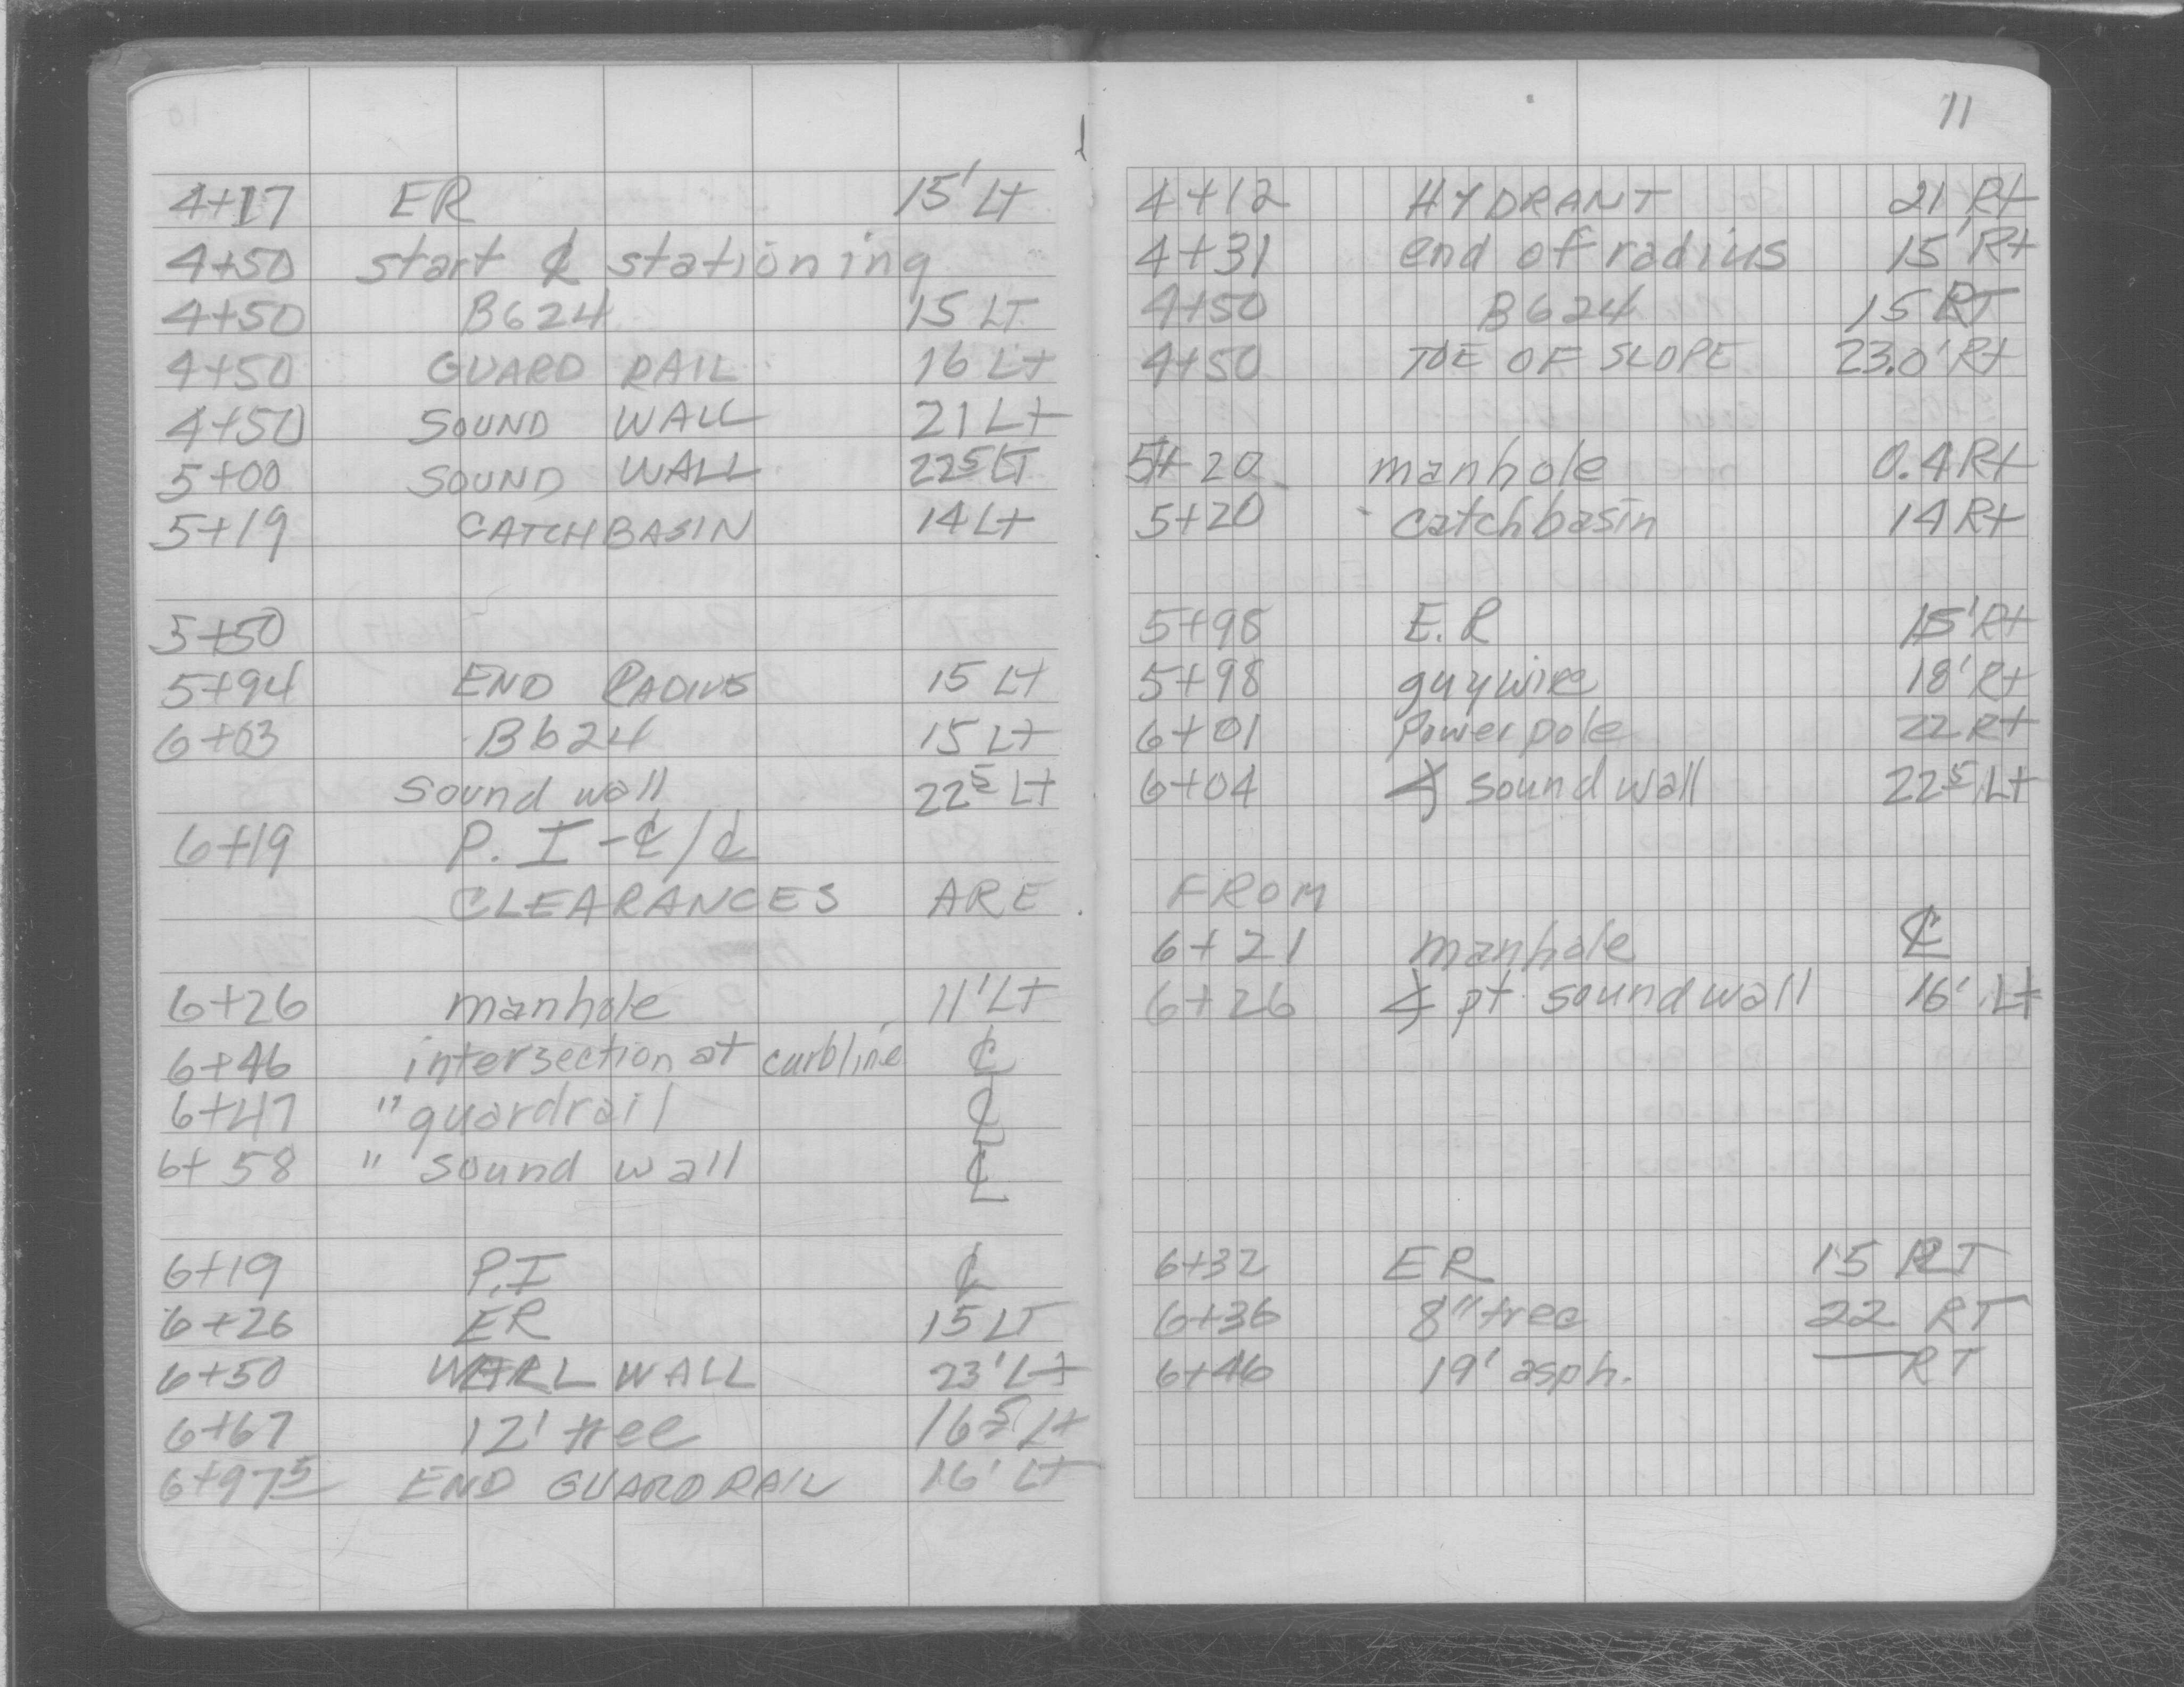 4+17 ER 15' Lt
4+50 start ℄ stationing
4+50 B624 15 LT
4+50 GUARD RAIL 16 Lt
4+50 SOUND WALL 21 Lt
5+00 SOUND WALL 22⁵ LT
5+19 CATCHBASIN 14 Lt
5+50
5+94 END RADIUS 15 Lt
6+03 B624 15 Lt
sound wall 22⁵ Lt
6+19 P.I - ℄/℄
CLEARANCES ARE
6+26 manhole 11' Lt
6+46 intersection at curbline ℄
6+47 " guardrail ℄
6+58 " sound wall ℄
6+19 P.I ℄
6+26 ER 15 LT
6+50 WALL 23' Lt
6+67 12' tree 16⁵ Lt
6+97⁵ END GUARDRAIL 16' LT
11
4+12 HYDRANT 21' Rt
4+31 end of radius 15' Rt
4+50 B624 15 RT
4+50 TOE OF SLOPE 23.0' Rt
5+20 manhole 0.4 Rt
5+20 catchbasin 14 Rt
5+98 E.R 15' Rt
5+98 guywire 18' Rt
6+01 Powerpole 22 Rt
6+04 ∡ sound wall 22⁵ Lt
FROM
6+21 manhole ℄
6+26 ∡ pt. soundwall 16' Lt
6+32 ER 15 RT
6+36 8" tree 22 RT
6+46 19' asph. — RT